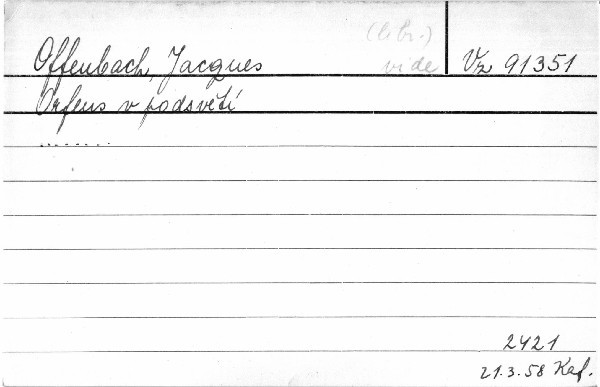 (libr.)
Offenbach, Jacques vide Vz 91351
Orfeus v podsvětí
........
2421
21.3.58 Kaf.